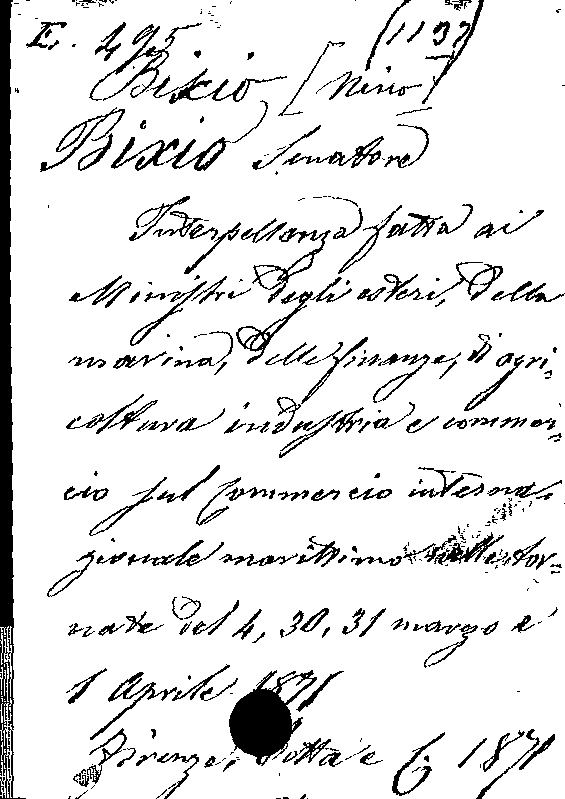 E. 495 (1137)
Bixio [Nino]
Bixio Senatore
Interpellanza fatta ai
Ministri degli esteri, della
marina, delle finanze, di agri-
coltura industria e commer-
cio sul commercio interna-
zionale marittimo nelle tor-
nate del 4, 30, 31 marzo e
1 Aprile 1871
Firenze, Botta e C; 1871